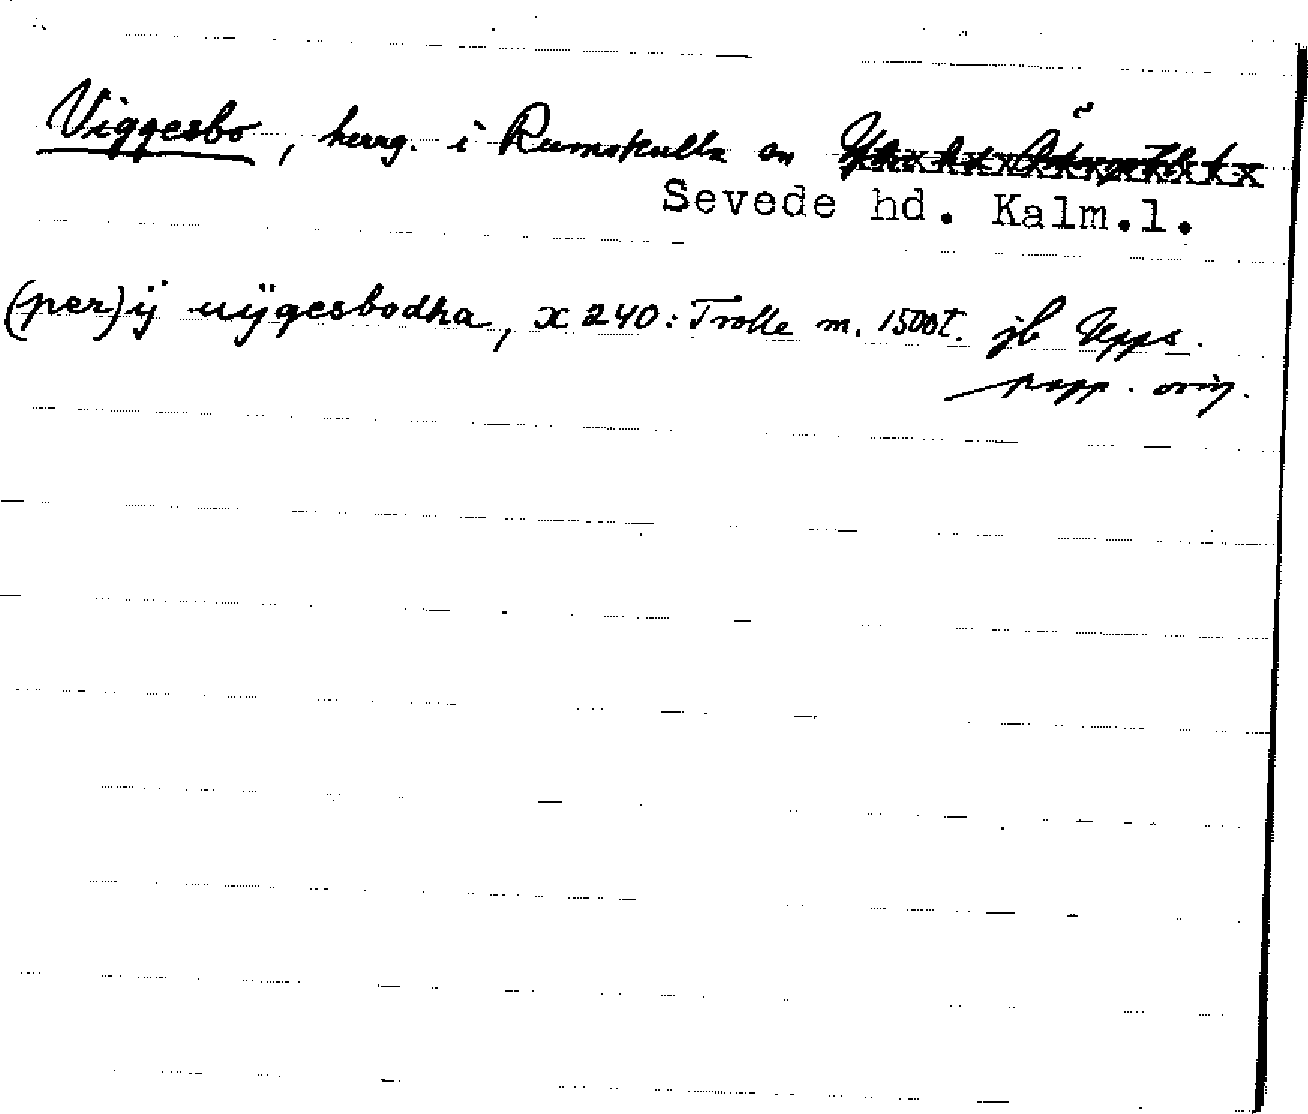 Viggesbo, herrg. i Rumskulla sn
Sevede hd. Kalm.l.
(per) ij uÿgesbodha, x 240: Trolle m. 1500t. jb Upps.
papp. orig.